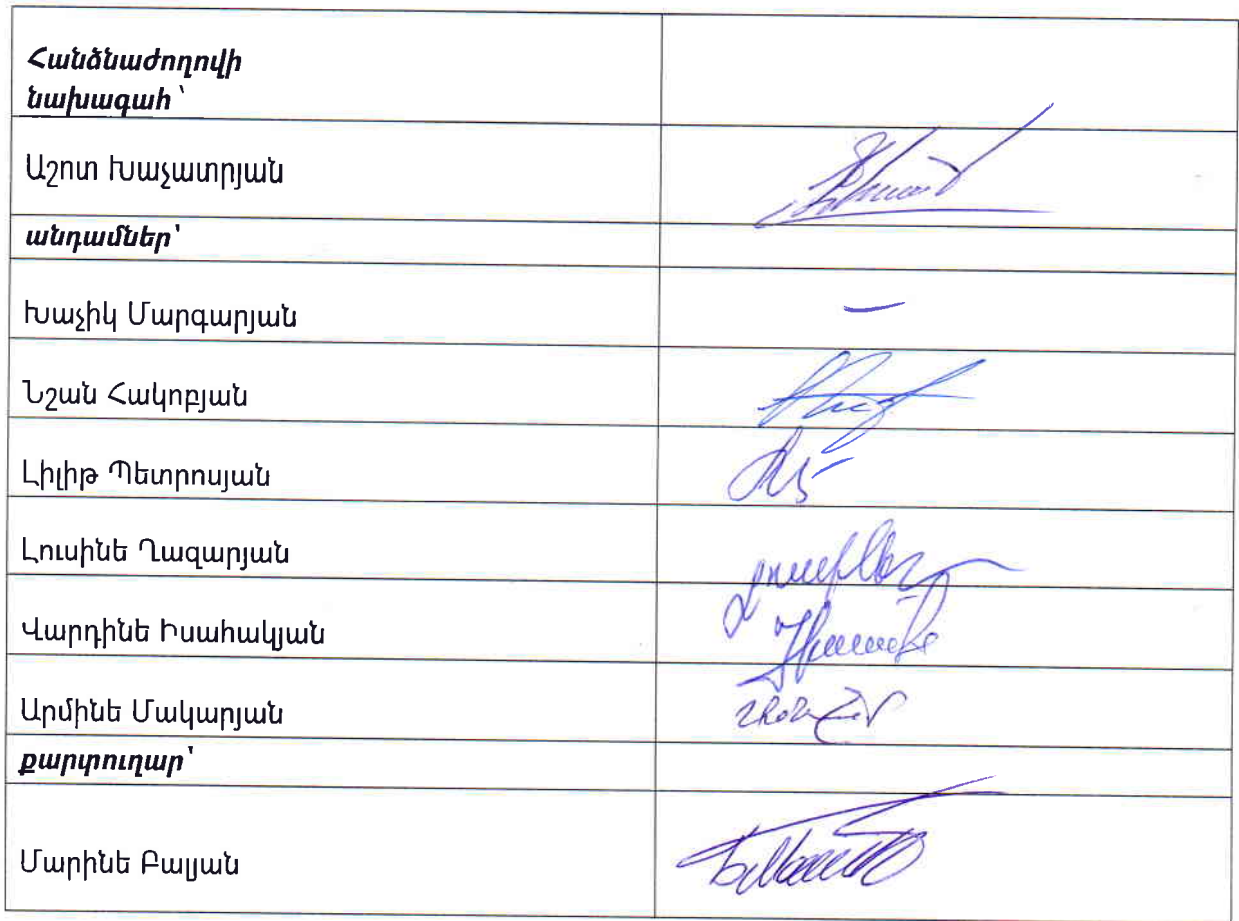 Հանձնաժողովի
նախագահ՝
Աշոտ Խաչատրյան
անդամներ՝
Խաչիկ Մարգարյան
–
Նշան Հակոբյան
Լիլիթ Պետրոսյան
Լուսինե Ղազարյան
Վարդինե Իսահակյան
Արմինե Մակարյան
քարտուղար՝
Մարինե Բալյան